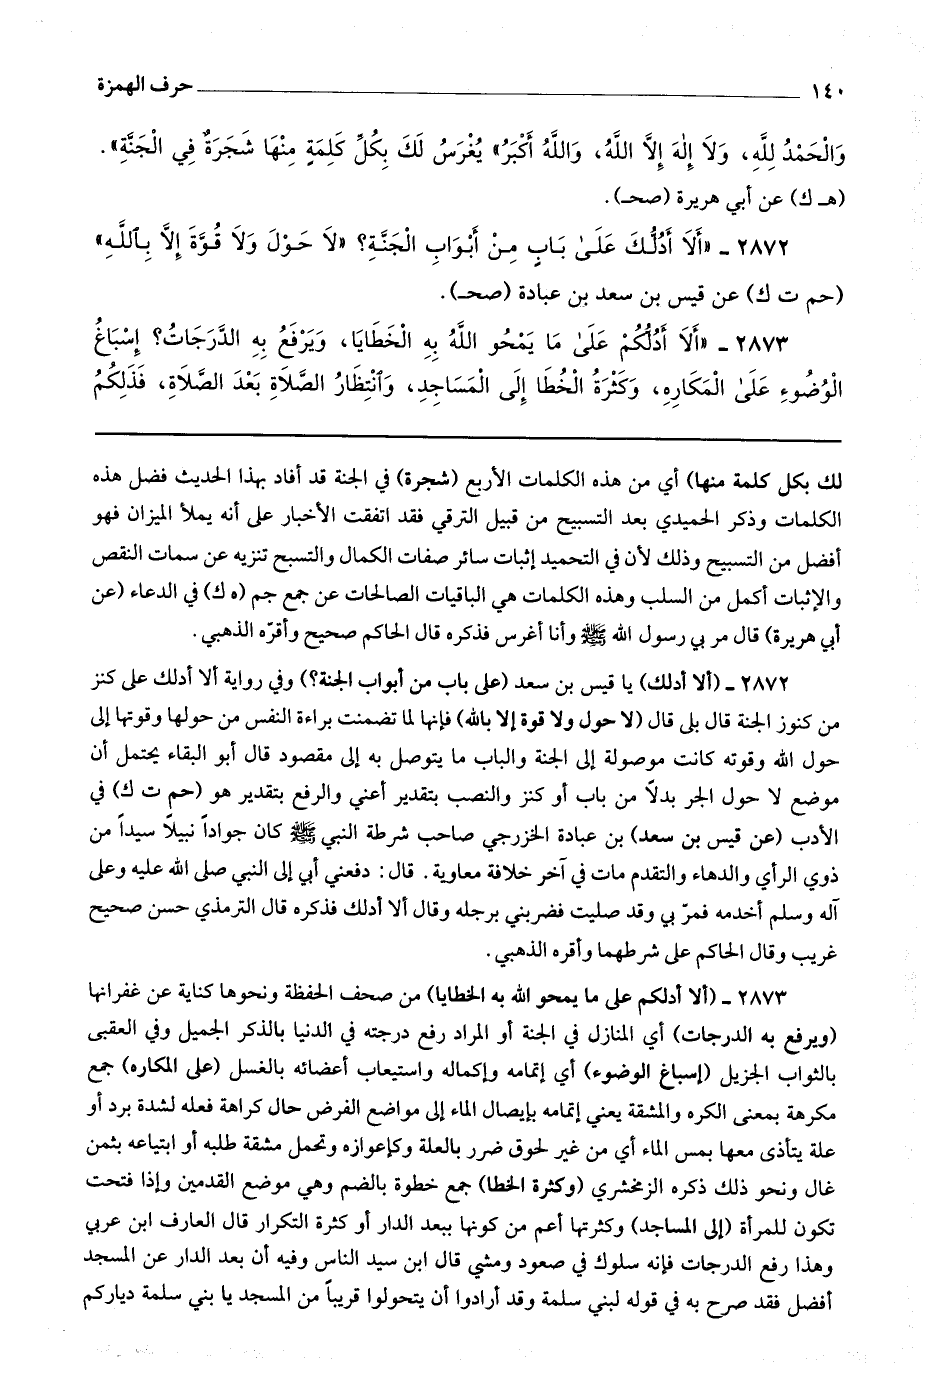 ١٤٠ حرف الهمزة
وَالْحَمْدُ لِلَّهِ، وَلَا إِلٰهَ إِلَّا اللَّهُ، وَاللَّهُ أَكْبَرُ» يُغْرَسُ لَكَ بِكُلِّ كَلِمَةٍ مِنْهَا شَجَرَةٌ فِي الْجَنَّةِ».
(هـ ك) عن أبي هريرة (صحـ).
٢٨٧٢ ـ «أَلَا أَدُلُّكَ عَلَىٰ بَابٍ مِنْ أَبْوَابِ الْجَنَّةِ؟ «لَا حَوْلَ وَلَا قُوَّةَ إِلَّا بِٱللَّهِ»
(حم ت ك) عن قيس بن سعد بن عبادة (صحـ).
٢٨٧٣ ـ «أَلَا أَدُلُّكُمْ عَلَىٰ مَا يَمْحُو اللَّهُ بِهِ الْخَطَايَا، وَيَرْفَعُ بِهِ الدَّرَجَاتُ؟ إِسْبَاغُ
الْوُضُوءِ عَلَىٰ الْمَكَارِهِ، وَكَثْرَةُ الْخُطَا إِلَى الْمَسَاجِدِ، وَٱنْتِظَارُ الصَّلَاةِ بَعْدَ الصَّلَاةِ، فَذَلِكُمُ
لك بكل كلمة منها) أي من هذه الكلمات الأربع (شجرة) في الجنة قد أفاد بهذا الحديث فضل هذه
الكلمات وذكر الحميدي بعد التسبيح من قبيل الترقي فقد اتفقت الأخبار على أنه يملأ الميزان فهو
أفضل من التسبيح وذلك لأن في التحميد إثبات سائر صفات الكمال والتسبح تنزيه عن سمات النقص
والإثبات أكمل من السلب وهذه الكلمات هي الباقيات الصالحات عن جمع جم (ه ك) في الدعاء (عن
أبي هريرة) قال مر بي رسول الله ﷺ وأنا أغرس فذكره قال الحاكم صحيح وأقرّه الذهبي.
٢٨٧٢ ـ (ألا أدلك) يا قيس بن سعد (على باب من أبواب الجنة؟) وفي رواية ألا أدلك على كنز
من كنوز الجنة قال بلى قال (لا حول ولا قوة إلا بالله) فإنها لما تضمنت براءة النفس من حولها وقوتها إلى
حول الله وقوته كانت موصولة إلى الجنة والباب ما يتوصل به إلى مقصود قال أبو البقاء يحتمل أن
موضع لا حول الجر بدلاً من باب أو كنز والنصب بتقدير أعني والرفع بتقدير هو (حم ت ك) في
الأدب (عن قيس بن سعد) بن عبادة الخزرجي صاحب شرطة النبي ﷺ كان جواداً نبيلاً سيداً من
ذوي الرأي والدهاء والتقدم مات في آخر خلافة معاوية. قال: دفعني أبي إلى النبي صلى الله عليه وعلى
آله وسلم أخدمه فمرّ بي وقد صليت فضربني برجله وقال ألا أدلك فذكره قال الترمذي حسن صحيح
غريب وقال الحاكم على شرطهما وأقره الذهبي.
٢٨٧٣ ـ (ألا أدلكم على ما يمحو الله به الخطايا) من صحف الحفظة ونحوها كناية عن غفرانها
(ويرفع به الدرجات) أي المنازل في الجنة أو المراد رفع درجته في الدنيا بالذكر الجميل وفي العقبى
بالثواب الجزيل (إسباغ الوضوء) أي إتمامه وإكماله واستيعاب أعضائه بالغسل (على المكاره) جمع
مكرهة بمعنى الكره والمشقة يعني إتمامه بإيصال الماء إلى مواضع الفرض حال كراهة فعله لشدة برد أو
علة يتأذى معها بمس الماء أي من غير لحوق ضرر بالعلة وكإعوازه وتحمل مشقة طلبه أو ابتياعه بثمن
غال ونحو ذلك ذكره الزمخشري (وكثرة الخطا) جمع خطوة بالضم وهي موضع القدمين وإذا فتحت
تكون للمرأة (إلى المساجد) وكثرتها أعم من كونها ببعد الدار أو كثرة التكرار قال العارف ابن عربي
وهذا رفع الدرجات فإنه سلوك في صعود ومشي قال ابن سيد الناس وفيه أن بعد الدار عن المسجد
أفضل فقد صرح به في قوله لبني سلمة وقد أرادوا أن يتحولوا قريباً من المسجد يا بني سلمة دياركم